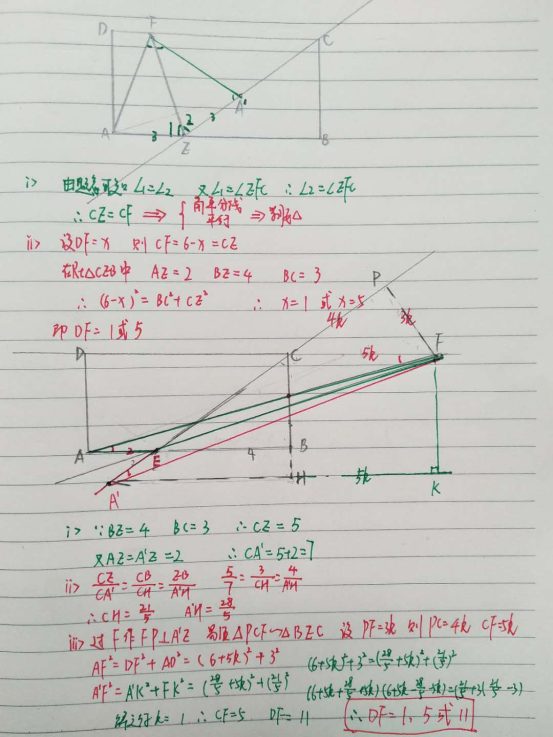 D F C
A' 3
A 3 1 2 Z B
i> 由题意可知 ∠1=∠2 又∠1=∠ZFC ∴∠2=∠ZFC
∴ CZ=CF ⟹ { 角平分线 平行 ⟹ 等腰△
ii> 设DF=x 则 CF=6-x=CZ
在Rt△CZB中 AZ=2 BZ=4 BC=3
∴ (6-x)²=BC²+CZ² ∴ x=1 或 x=5
即 DF=1或5
P
4k 3k
D C 5k 1 F
A 1 2 E 4 B
3
A' H 5k K
i> ∵BZ=4 BC=3 ∴CZ=5
又AZ=A'Z=2 ∴CA'=5+2=7
ii> CZ/CA'=CB/CH=ZB/A'H 5/7=3/CH=4/A'H
∴CH=21/5 A'H=28/5
iii> 过F作FP⊥A'Z 易证△PCF∽△BZC 设PF=3k 则PC=4k CF=5k
AF²=DF²+AD²=(6+5k)²+3² (6+5k)²+3²=(28/5+5k)²+(21/5)²
A'F²=A'K²+FK²=(28/5+5k)²+(21/5)² (6+5k+28/5+5k)(6+5k-28/5-5k)=(21/5+3)(21/5-3)
k=1 ∴CF=5 DF=11 ∴DF=1、5或11